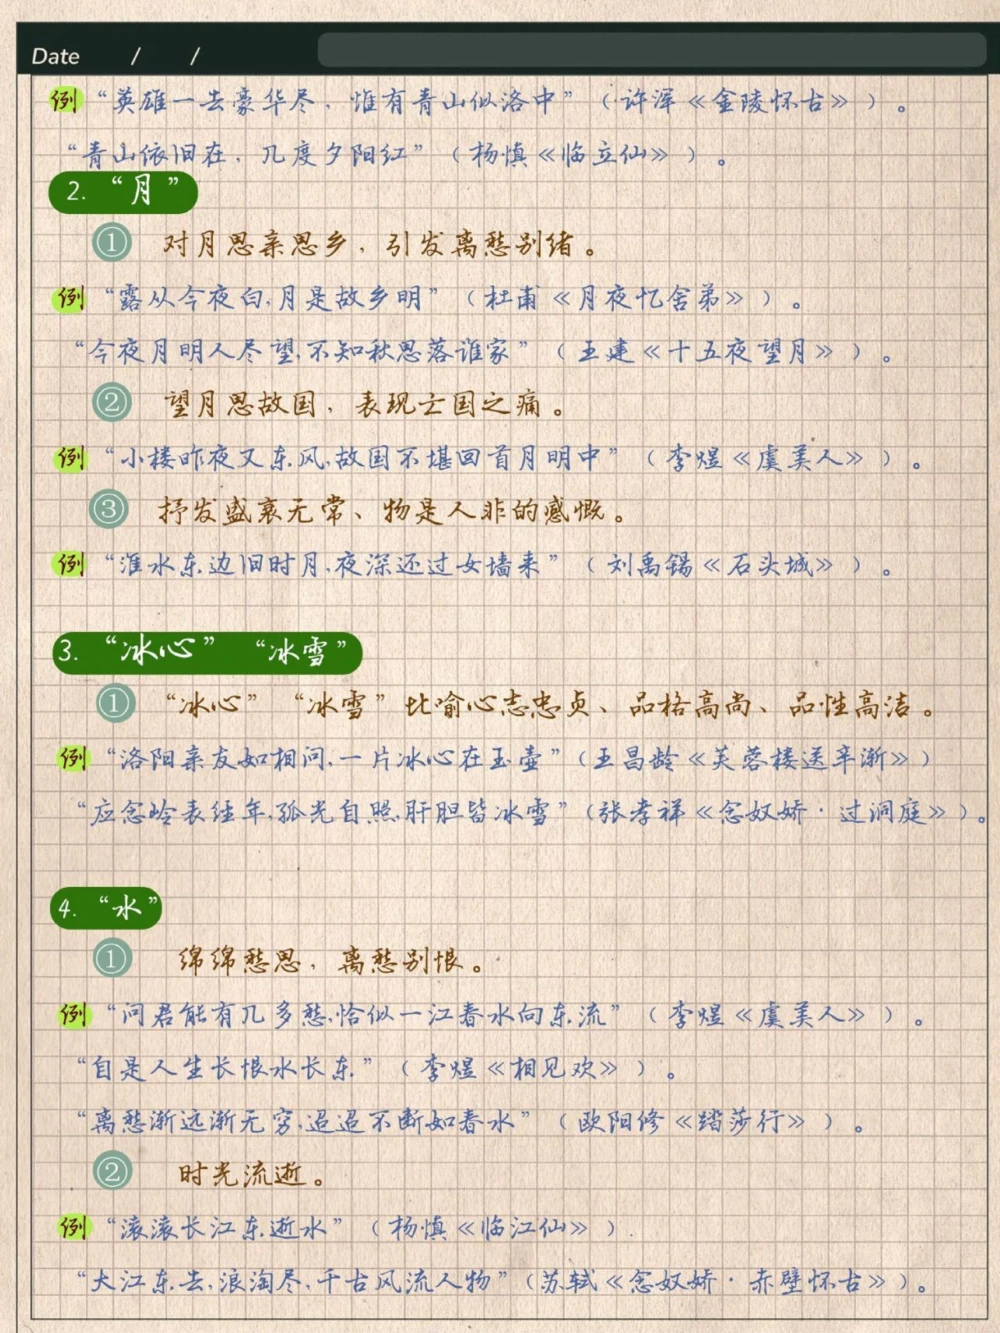 Date / /
例 “英雄一去豪华尽，惟有青山似洛中”（许浑《金陵怀古》）。
“青山依旧在，几度夕阳红”（杨慎《临立仙》）。
2. “月”
① 对月思亲思乡，引发离愁别绪。
例 “露从今夜白，月是故乡明”（杜甫《月夜忆舍弟》）。
“今夜月明人尽望，不知秋思落谁家”（王建《十五夜望月》）。
② 望月思故国，表现亡国之痛。
例 “小楼昨夜又东风，故国不堪回首月明中”（李煜《虞美人》）。
③ 抒发盛衰无常、物是人非的感慨。
例 “淮水东边旧时月，夜深还过女墙来”（刘禹锡《石头城》）。
3. “冰心” “冰雪”
① “冰心” “冰雪”比喻心志忠贞、品格高尚、品性高洁。
例 “洛阳亲友如相问，一片冰心在玉壶”（王昌龄《芙蓉楼送辛渐》）
“应念岭表经年，孤光自照，肝胆皆冰雪”（张孝祥《念奴娇·过洞庭》）。
4. “水”
① 绵绵愁思，离愁别恨。
例 “问君能有几多愁，恰似一江春水向东流”（李煜《虞美人》）。
“自是人生长恨水长东”（李煜《相见欢》）。
“离愁渐远渐无穷，迢迢不断如春水”（欧阳修《踏莎行》）。
② 时光流逝。
例 “滚滚长江东逝水”（杨慎《临江仙》）
“大江东去，浪淘尽，千古风流人物”（苏轼《念奴娇·赤壁怀古》）。